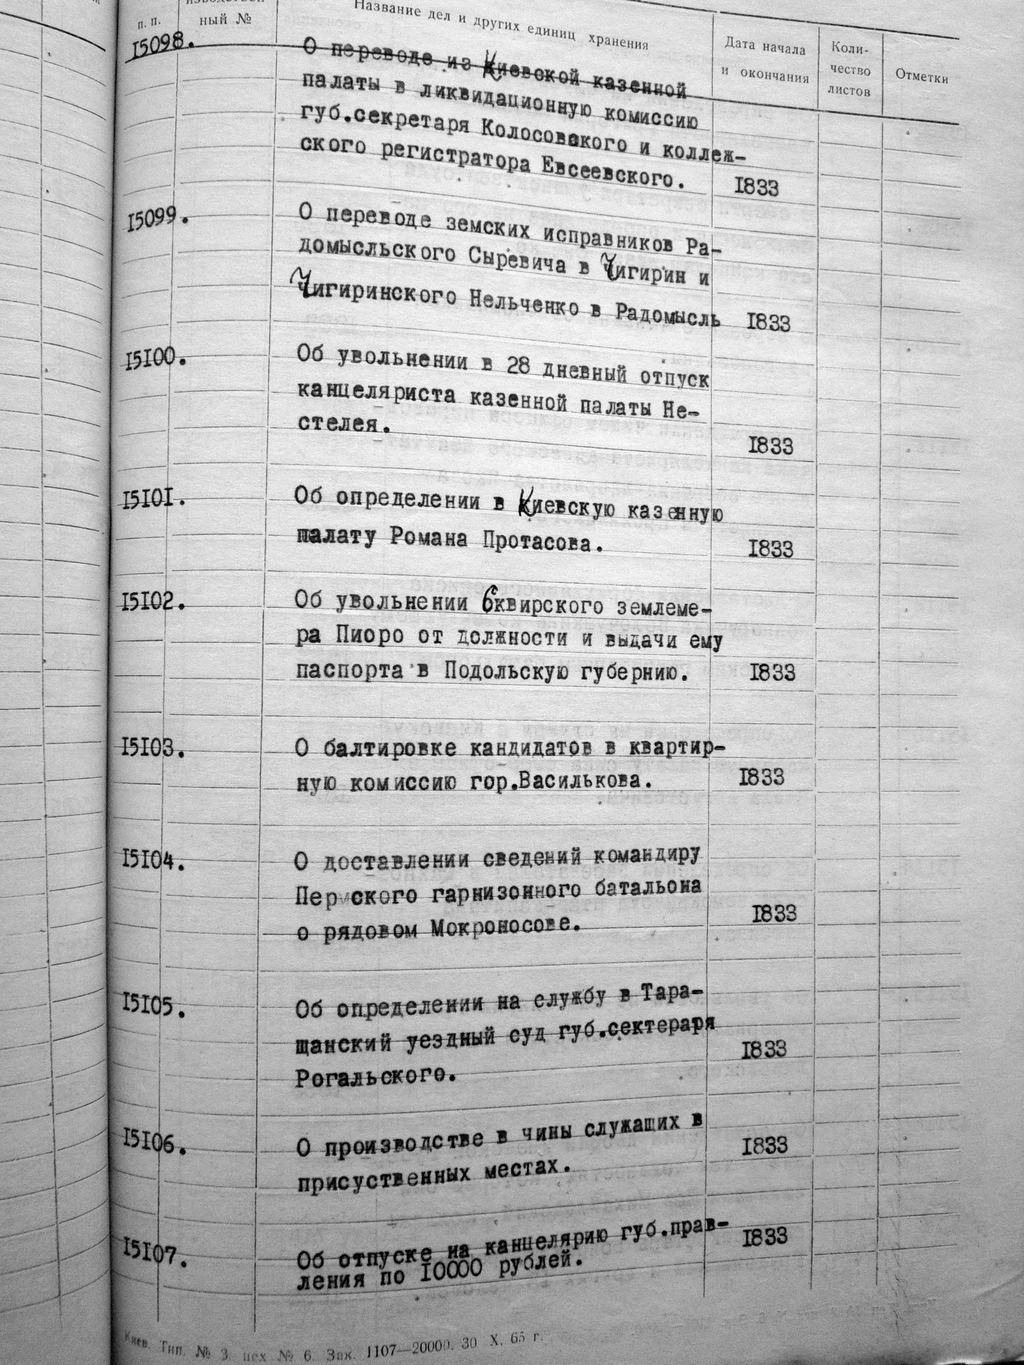 п. п.
ный №
Название дел и других единиц хранения
Дата начала
и окончания
Коли-
чество
листов
Отметки
15098.
О переводе из Киевской казенной
палаты в ликвидационную комиссию
губ.секретаря Колосовского и коллеж-
ского регистратора Евсеевского.
1833
15099.
О переводе земских исправников Ра-
домысльского Сыревича в Чигирин и
Чигиринского Нельченко в Радомысль
1833
15100.
Об увольнении в 28 дневный отпуск
канцеляриста казенной палаты Не-
стелея.
1833
15101.
Об определении в Киевскую казенную
палату Романа Протасова.
1833
15102.
Об увольнении Сквирского землеме-
ра Пиоро от должности и выдачи ему
паспорта в Подольскую губернию.
1833
15103.
О балтировке кандидатов в квартир-
ную комиссию гор.Василькова.
1833
15104.
О доставлении сведений командиру
Пермского гарнизонного батальона
о рядовом Мокроносове.
1833
15105.
Об определении на службу в Тара-
щанский уездный суд губ.сектераря
Рогальского.
1833
15106.
О производстве в чины служащих в
присуственных местах.
1833
15107.
Об отпуске на канцелярию губ.прав-
ления по 10000 рублей.
1833
Киев. Тип. № 3. цех № 6. Зак. 1107—20000. 30 X. 65 г.